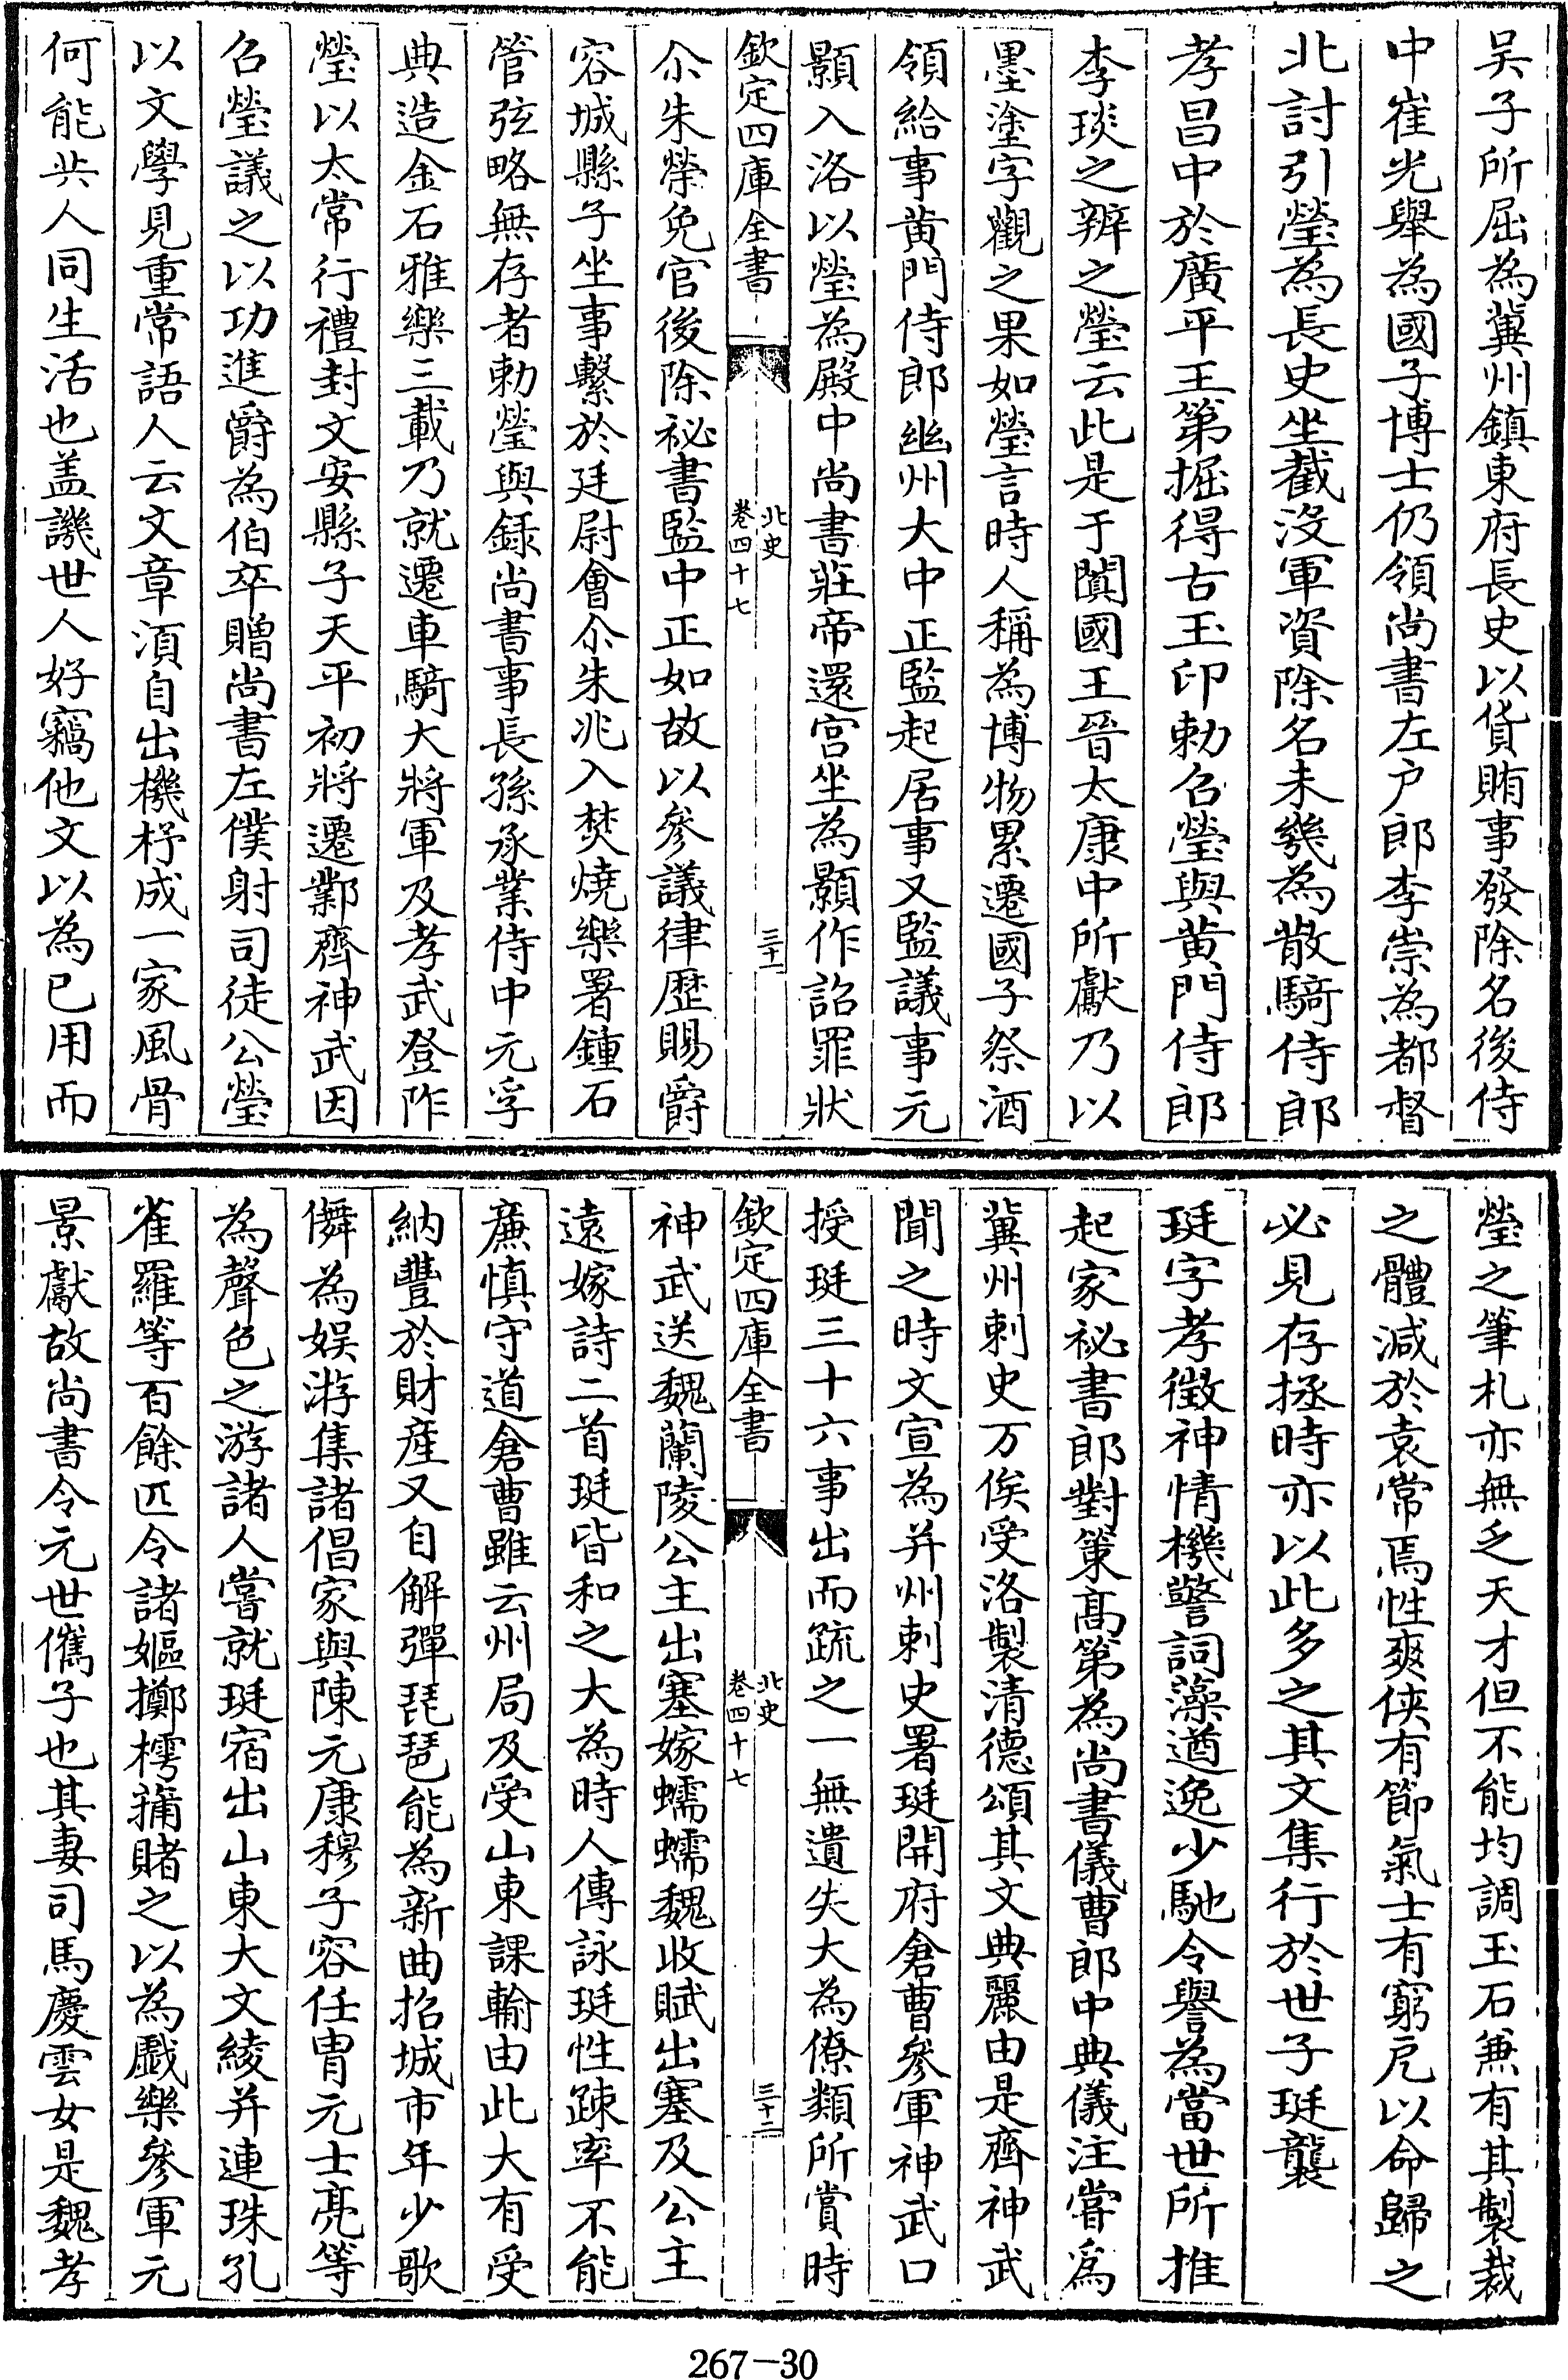 吴子所屈為冀州鎮東府長史以貨賄事發除名後侍
中崔光舉為國子博士仍領尚書左户郎李崇為都督
北討引瑩為長史坐截没軍資除名未幾為散騎侍郎
孝昌中於廣平王第掘得古玉印勅召瑩與黄門侍郎
李琰之辨之瑩云此是于闐國王晉太康中所獻乃以
墨塗字觀之果如瑩言時人稱為博物累遷國子祭酒
領給事黄門侍郎幽州大中正監起居事又監議事元
顥入洛以瑩為殿中尚書莊帝還宫坐為顥作詔罪狀
欽定四庫全書
北史
卷四十七
三十一
尒朱榮免官後除祕書監中正如故以參議律歴賜爵
容城縣子坐事繫於廷尉會尒朱兆入焚燒樂署鍾石
管弦略無存者勅瑩與録尚書事長孫承業侍中元孚
典造金石雅樂三載乃就遷車騎大將軍及孝武登阼
瑩以太常行禮封文安縣子天平初將遷鄴齊神武因
召瑩議之以功進爵為伯卒贈尚書左僕射司徒公瑩
以文學見重常語人云文章須自出機杼成一家風骨
何能共人同生活也盖譏世人好竊他文以為已用而
瑩之筆札亦無乏天才但不能均調玉石兼有其製裁
之體減於袁常焉性爽俠有節氣士有窮戹以命歸之
必見存拯時亦以此多之其文集行於世子珽襲
珽字孝徴神情機警詞藻遒逸少馳令譽為當世所推
起家祕書郎對策髙第為尚書儀曹郎中典儀注嘗爲
冀州刺史万俟受洛製清德頌其文典麗由是齊神武
聞之時文宣為并州刺史署珽開府倉曹參軍神武口
授珽三十六事出而疏之一無遺失大為僚類所賞時
欽定四庫全書
北史
卷四十七
三十二
神武送魏蘭陵公主出塞嫁蠕蠕魏收賦出塞及公主
遠嫁詩二首珽皆和之大為時人傳詠珽性疎率不能
廉慎守道倉曹雖云州局及受山東課輸由此大有受
納豐於財産又自解彈琵琶能為新曲招城市年少歌
儛為娱游集諸倡家與陳元康穆子容任胄元士亮等
為聲色之游諸人嘗就珽宿出山東大文綾并連珠孔
雀羅等百餘匹令諸嫗擲樗蒱賭之以為戲樂參軍元
景獻故尚書令元世儁子也其妻司馬慶雲女是魏孝
267-30